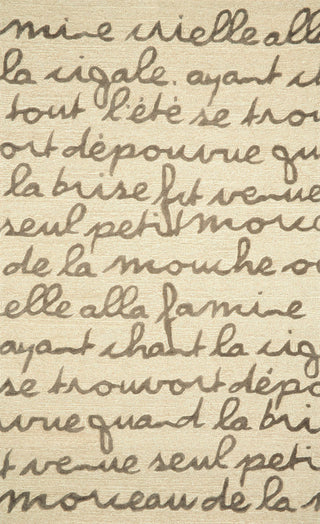 mine crielle alla
la cigale. ayant ch
tout l'été se trou
ort dépouvue qu
la brise fit venue
seul petit morce
de la mouche ou
elle alla famine
ayant chant la cig
se trouvort dépo
uvue quand la bri
t venue seul peti
morceau de la m